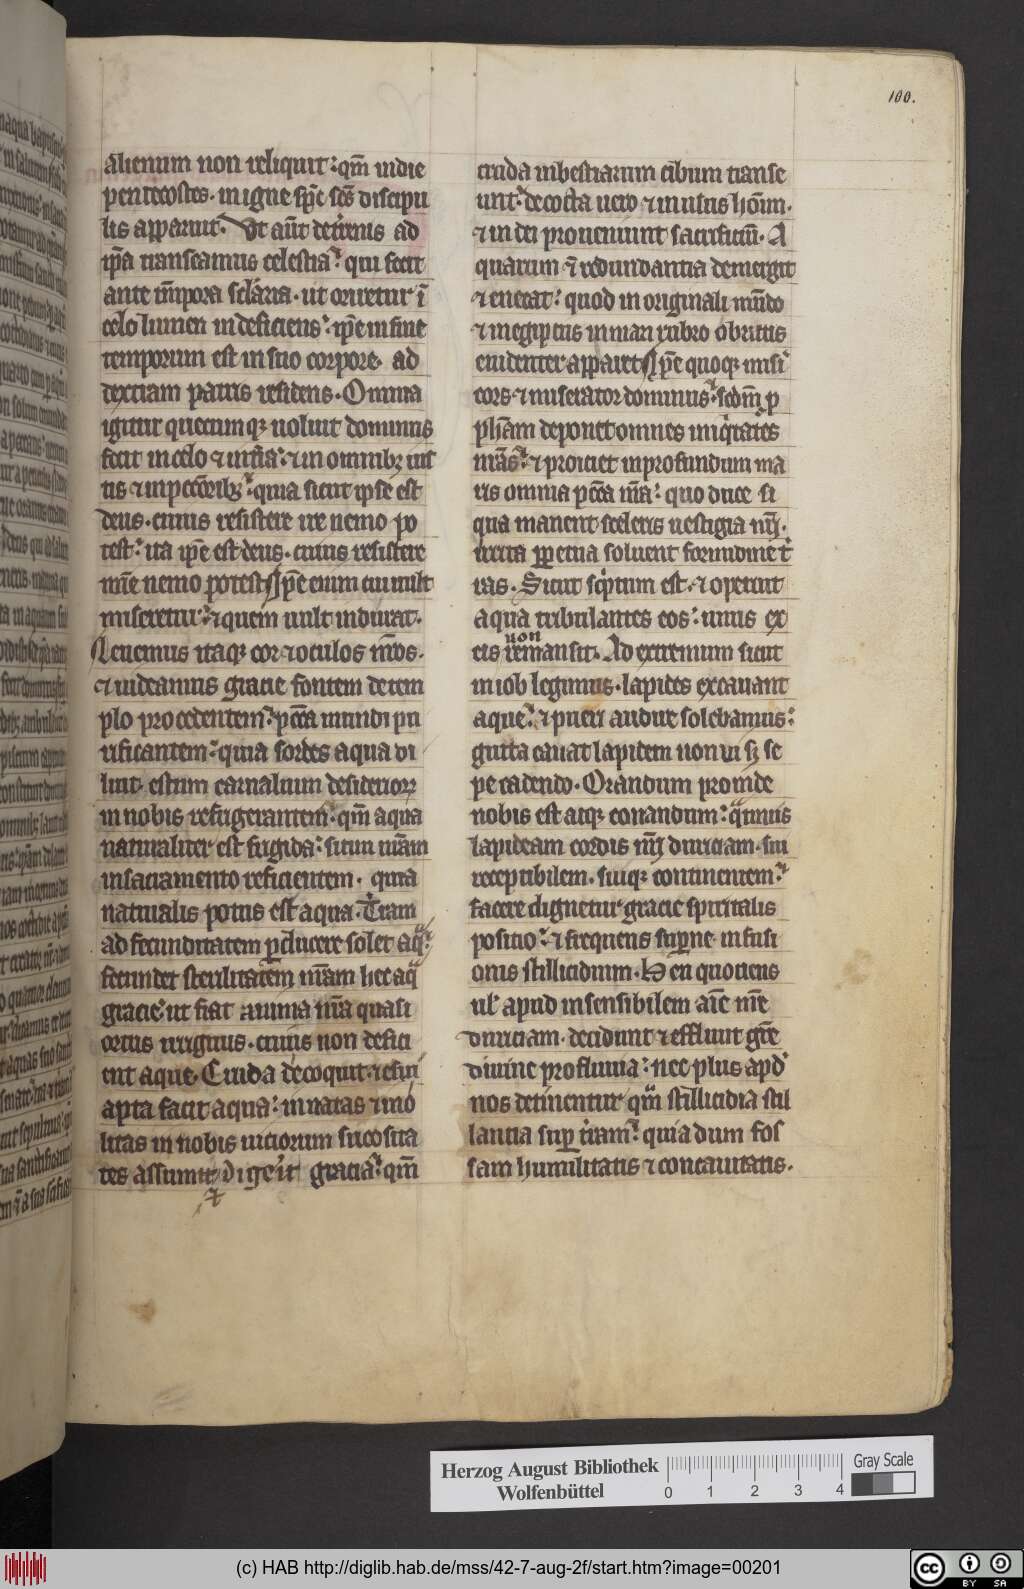 100.
alienum non reliquit: qm̄ in die
pentecostes. in igne sp̄c sc̄s discipu
lis apparuit. Ut aūt de tr̄enis ad
ip̄a transeamus celestia: qui fecit
ante tm̄pora sclaria. ut oriretur ī
celo lumen indeficiens: ip̄e in fine
temporum est in suo corpore ad
dextram patris residens. Omnia
igitur quecumqꝫ uoluit dominus
fecit in celo ⁊ in tr̄a: ⁊ in omnibꝫ ius
tis ⁊ in peccōribꝫ: quia sicut ipse est
deus. cuius resistere ire nemo po
test: ita ip̄e est deus. cuius resistere
mīe nemo potest Ip̄e enim cui uult
miseretur: ⁊ quem uult indurat.
Leuemus itaqꝫ cor ⁊ oculos nr̄os.
⁊ uideamus gracie fontem de tem
plo procedentem: pcc̄a mundi pu
rificantem: quia sordes aqua di
luit. estum carnalium desiderioꝝ
in nobis refrigerantem: qm̄ aqua
naturaliter est frigida: sitim nr̄am
in sacramento reficientem. quia
naturalis potus est aqua. Terram
ad fecunditatem ꝑducere solet aq̄:
fecundet sterilitatem nr̄am hec aq̄
gracie: ut fiat anima nr̄a quasi
ortus irriguus. cuius non defici
ent aque. Cruda decoquit. ⁊ esui
apta facit aqua: innatas ⁊ inō
litas in nobis uiciorum sucosita
tes assumit digerit gracia: qm̄
cruda in bestiarum cibum transe
unt: decocta uero ⁊ in usus hoīm.
⁊ in dei proueniunt sacrificiū. A
quarum ē redundantia demergit
⁊ enecat: quod in originali mūdo
⁊ in egiptus in mari rubro obrutus
euidenter apparet Ip̄e quoqꝫ misi
cors ⁊ miserator dominus: scd̄m ꝓ
ph̄am deponet omnes iniq̇tates
nr̄as: ⁊ proiciet in profundum ma
ris omnia pcc̄a nr̄a: quo duce si
qua manent sceleris uestigia nr̄i.
irrita ꝑpetua soluent formidine t̄
ras. Sicut sc̄ptum est. ⁊ operuit
aqua tribulantes eos: unus ex
eis non remansit. Ad extremum sicut
in iob legimus. lapides excauant
aque: ⁊ pueri audire solebamus:
gutta cauat lapidem non ui sꝫ se
pe cadendo. Orandum proinde
nobis est atqꝫ conandum: q̄tinus
lapideam cordis nr̄i duriciam. sui
receptibilem. suiqꝫ continentem:
facere dignetur gracie spiritalis
positio: ⁊ frequens suꝑne infusi
onis stillicidium. Heu quotiens
ul' apud insensibilem aīe nr̄e
duriciam. decidunt ⁊ effluunt gr̄e
diuine profluuia: nec plus apd̄
nos detinentur qm̄ stillicidia stil
lantia suꝑ tr̄am: quia dum fos
sam humilitatis ⁊ concauitatis.
Herzog August Bibliothek
Wolfenbüttel
0 1 2 3 4
Gray Scale
(c) HAB http://diglib.hab.de/mss/42-7-aug-2f/start.htm?image=00201
cc BY SA